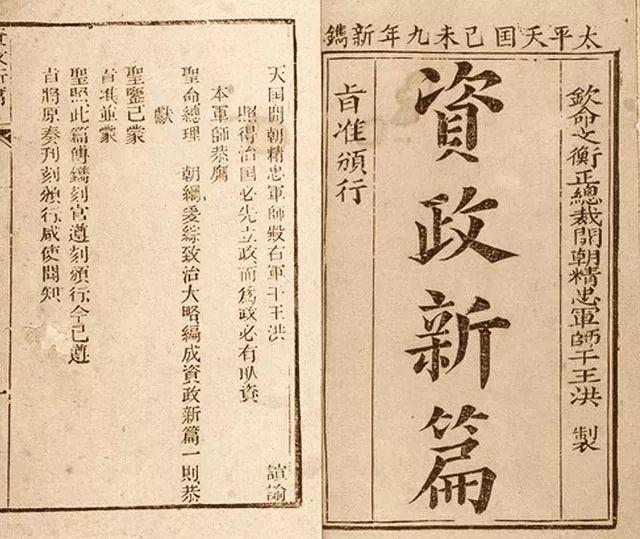 太平天囯己未九年新鐫
欽命文衡正總裁開朝精忠軍師干王洪 製
資政新篇
旨准頒行
天囯開朝精忠軍師殿右軍干王洪 諠諭
照得治囯必先立政而爲政必有取資
本軍師恭膺
聖命總理 朝綱爰綜致治大略編成資政新篇一則恭
獻
聖鑒已蒙
旨准並蒙
聖照此篇傳鐫刻官遵刻頒行今已遵
旨將原奏刊刻頒行咸使聞知